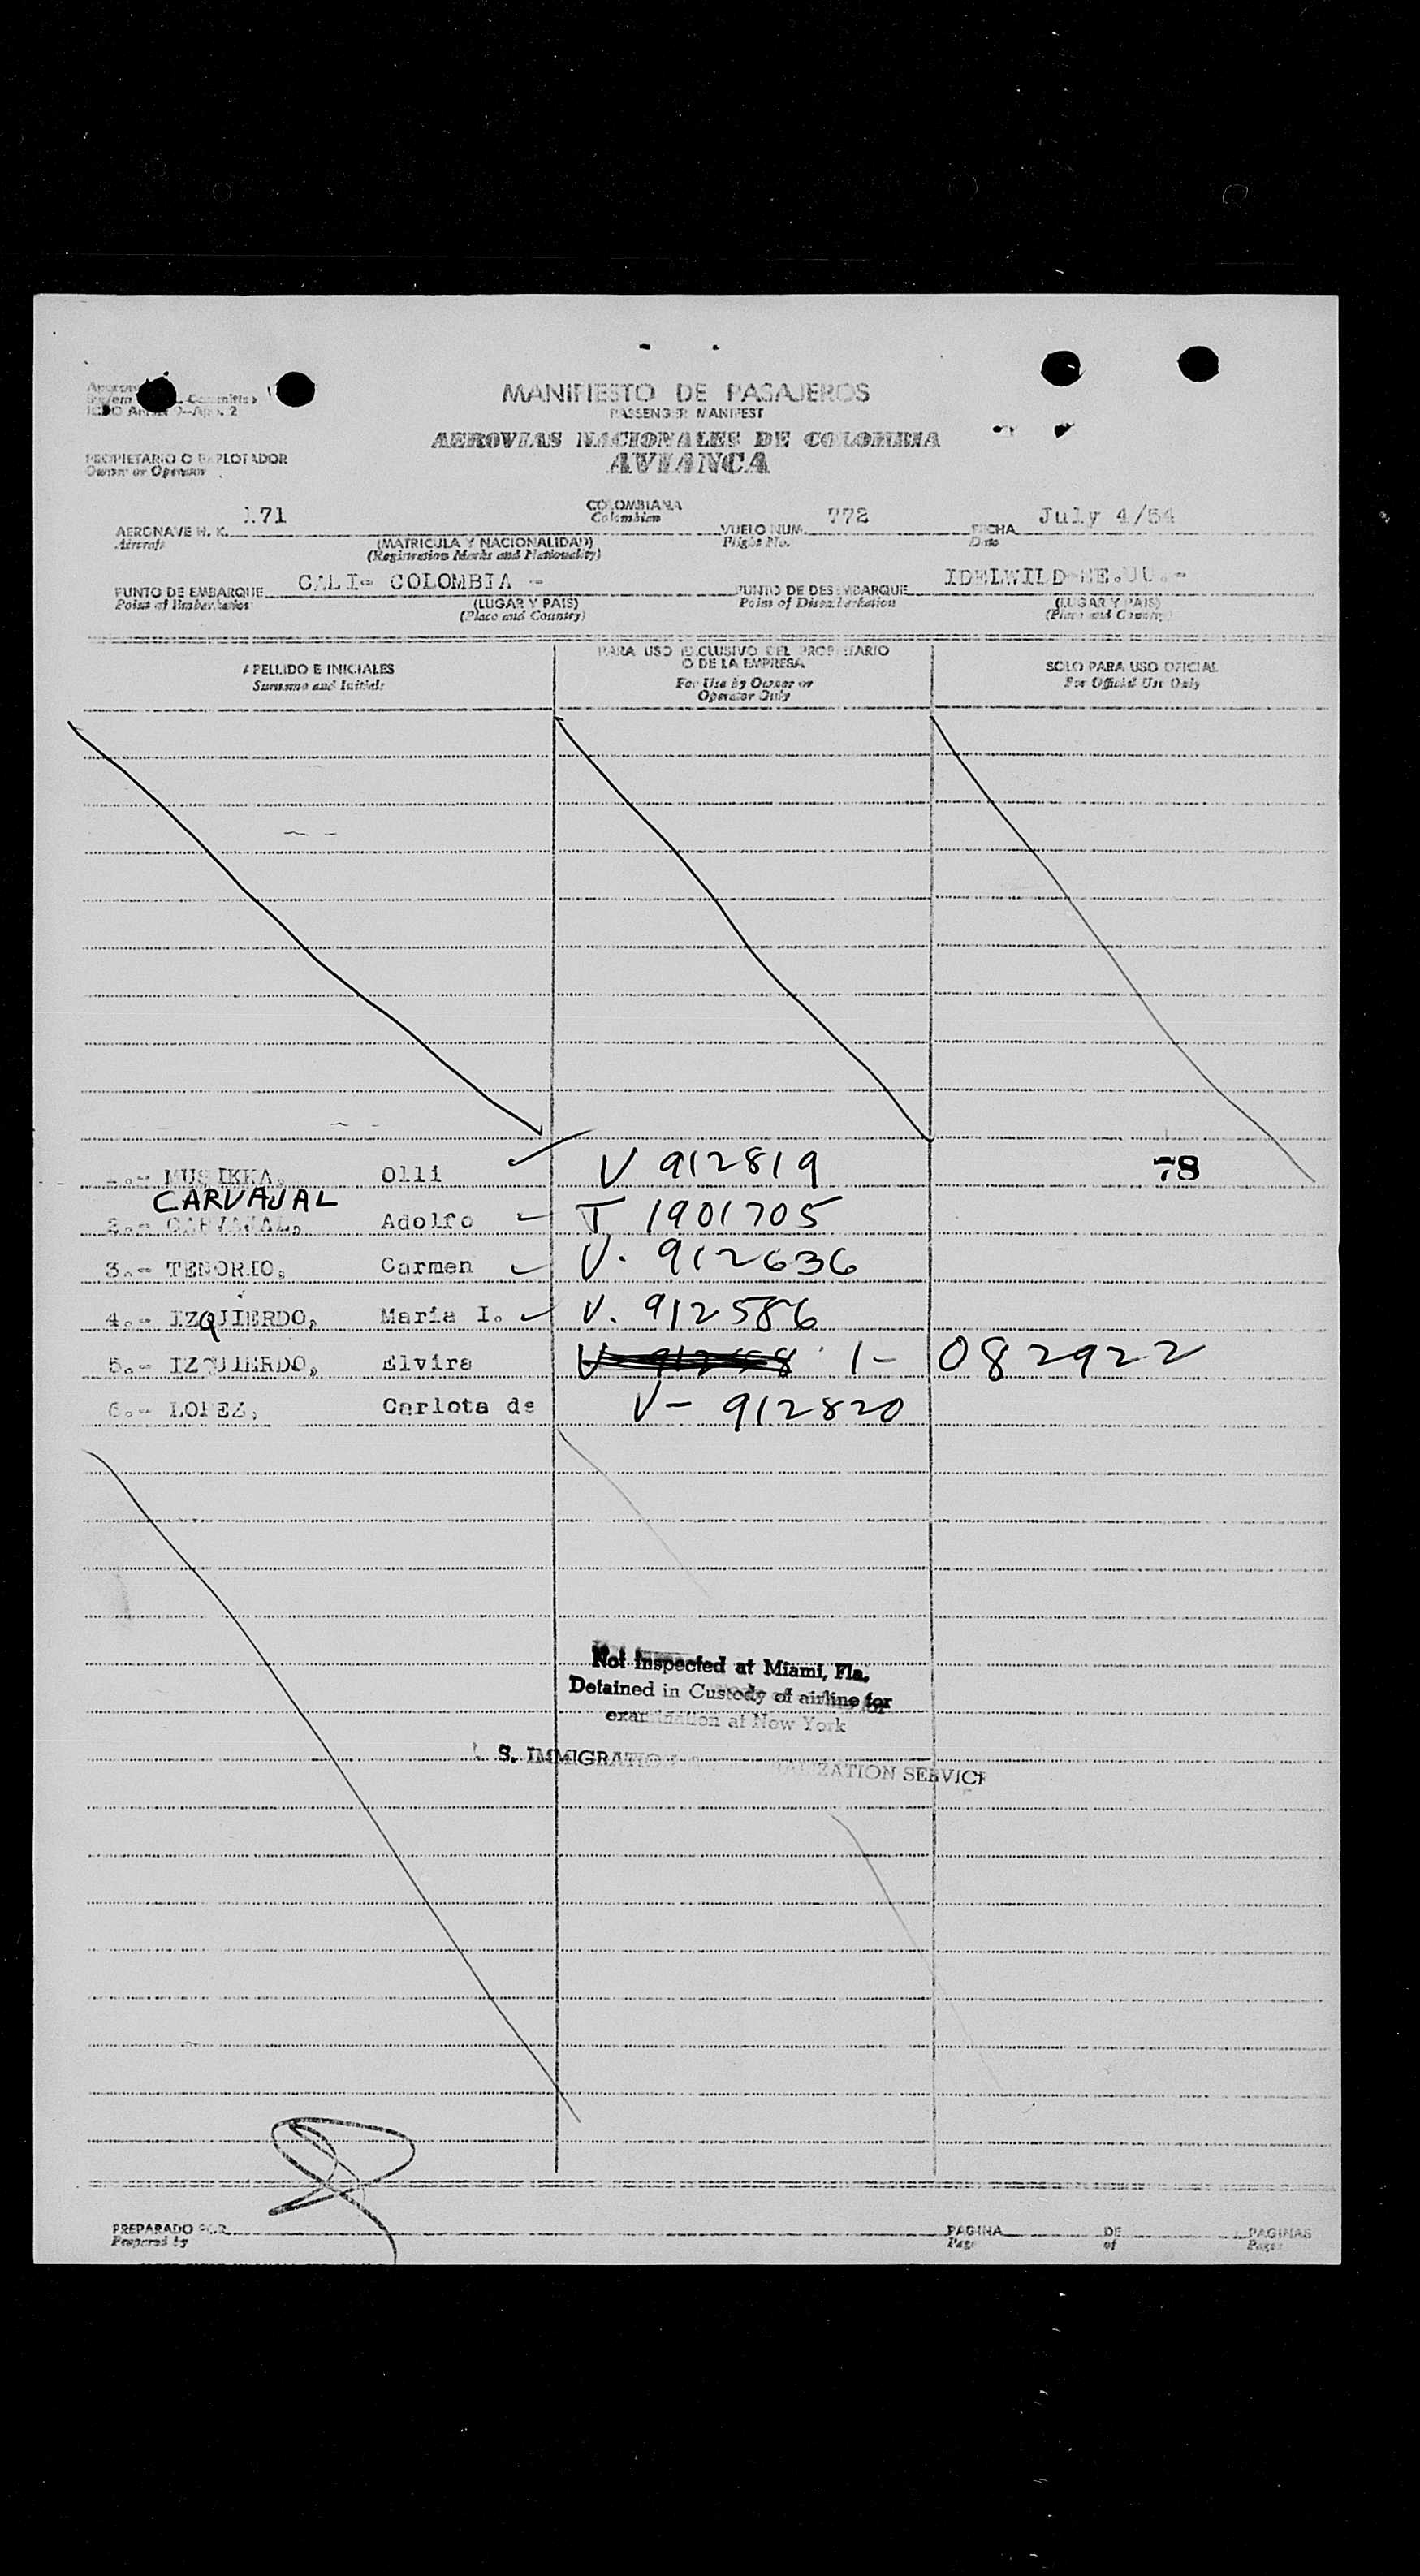 MANIFIESTO DE PASAJEROS
PASSENGER MANIFEST
AEROVIAS NACIONALES DE COLOMBIA
AVIANCA
PROPIETARIO O EXPLOTADOR
Owner or Operator
AERONAVE H. K. 171 COLOMBIANA VUELO NUM. 772 FECHA July 4/54
Aircraft Colombian Flight No. Date
(MATRICULA Y NACIONALIDAD)
(Registration Marks and Nationality)
PUNTO DE EMBARQUE CALI- COLOMBIA - PUNTO DE DESEMBARQUE IDELWILD EE.UU.-
Point of Embarkation (LUGAR Y PAIS) Point of Disembarkation (LUGAR Y PAIS)
(Place and Country) (Place and Country)
APELLIDO E INICIALES PARA USO EXCLUSIVO DEL PROPIETARIO O DE LA EMPRESA SOLO PARA USO OFICIAL
Surname and Initials For Use by Owner or Operator Only For Official Use Only
1.- MUSIKKA, Olli V 912819 78
CARVAJAL
2.- CARVAJAL, Adolfo T 1901705
3.- TENORIO, Carmen V. 912636
4.- IZQUIERDO, Maria I. V. 912586
5.- IZQUIERDO, Elvira 1- 082922
6.- LOPEZ, Carlota de V- 912820
Not Inspected at Miami, Fla.
Detained in Custody of airline for
examination at New York
S. IMMIGRATION NATURALIZATION SERVICE
PREPARADO POR PAGINA DE PAGINAS
Prepared by Page of Pages